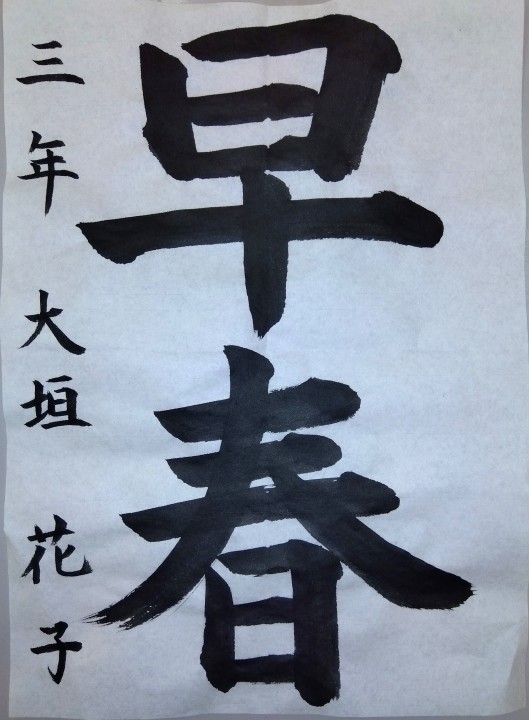 早春
三年 大垣 花子